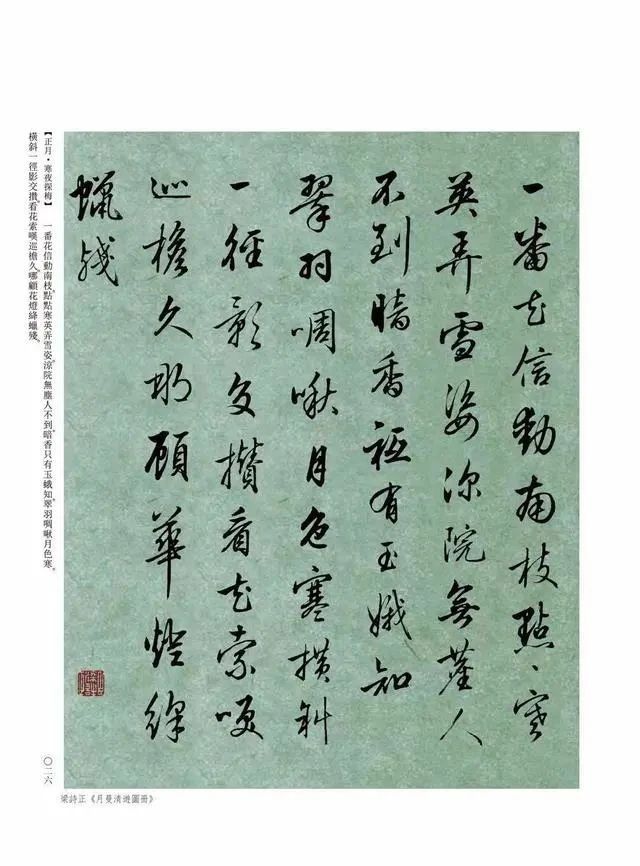 一番花信動南枝點點寒
英弄雪姿涼院無塵人
不到暗香祗有玉娥知
翠羽啁啾月色寒橫斜
一徑影交攢看花索咲
巡檐久那顧華燈絳
蠟殘
【正月·寒夜探梅】 一番花信動南枝。點點寒英弄雪姿。涼院無塵人不到。暗香只有玉蛾知。翠羽啁啾月色寒。
橫斜一徑影交攢。看花索嘆巡檐久。哪顧花燈絳蠟殘。
〇二六
梁詩正《月曼清遊圖冊》